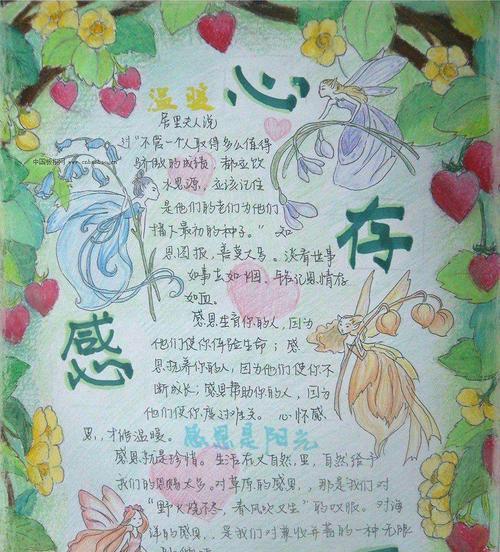 心
温暖
存
感
中国板报网
居里夫人说
过"不管一个人取得多么值得
骄傲的成绩，都应饮
水思源，应该记住
是他们的老师为他们
播下最初的种子。" 知
恩图报，善莫大焉。淡看世事
如事去如烟，铭记恩情存
如血。
感恩生育你的人，因为
他们使你体验生命；感
恩抚养你的人，因为他们使你不
断成长；感恩帮助你的人，因为
他们使你度过难关。心怀感
恩，才能温暖。
感恩是阳光
感恩就是珍惜。生活在大自然里，自然给予
我们的恩赐太多。对草原的感恩，，那是我们对
"野火烧不尽，春风吹又生"的叹服。对海
洋的感恩，，是我们对兼收并蓄的一种无限